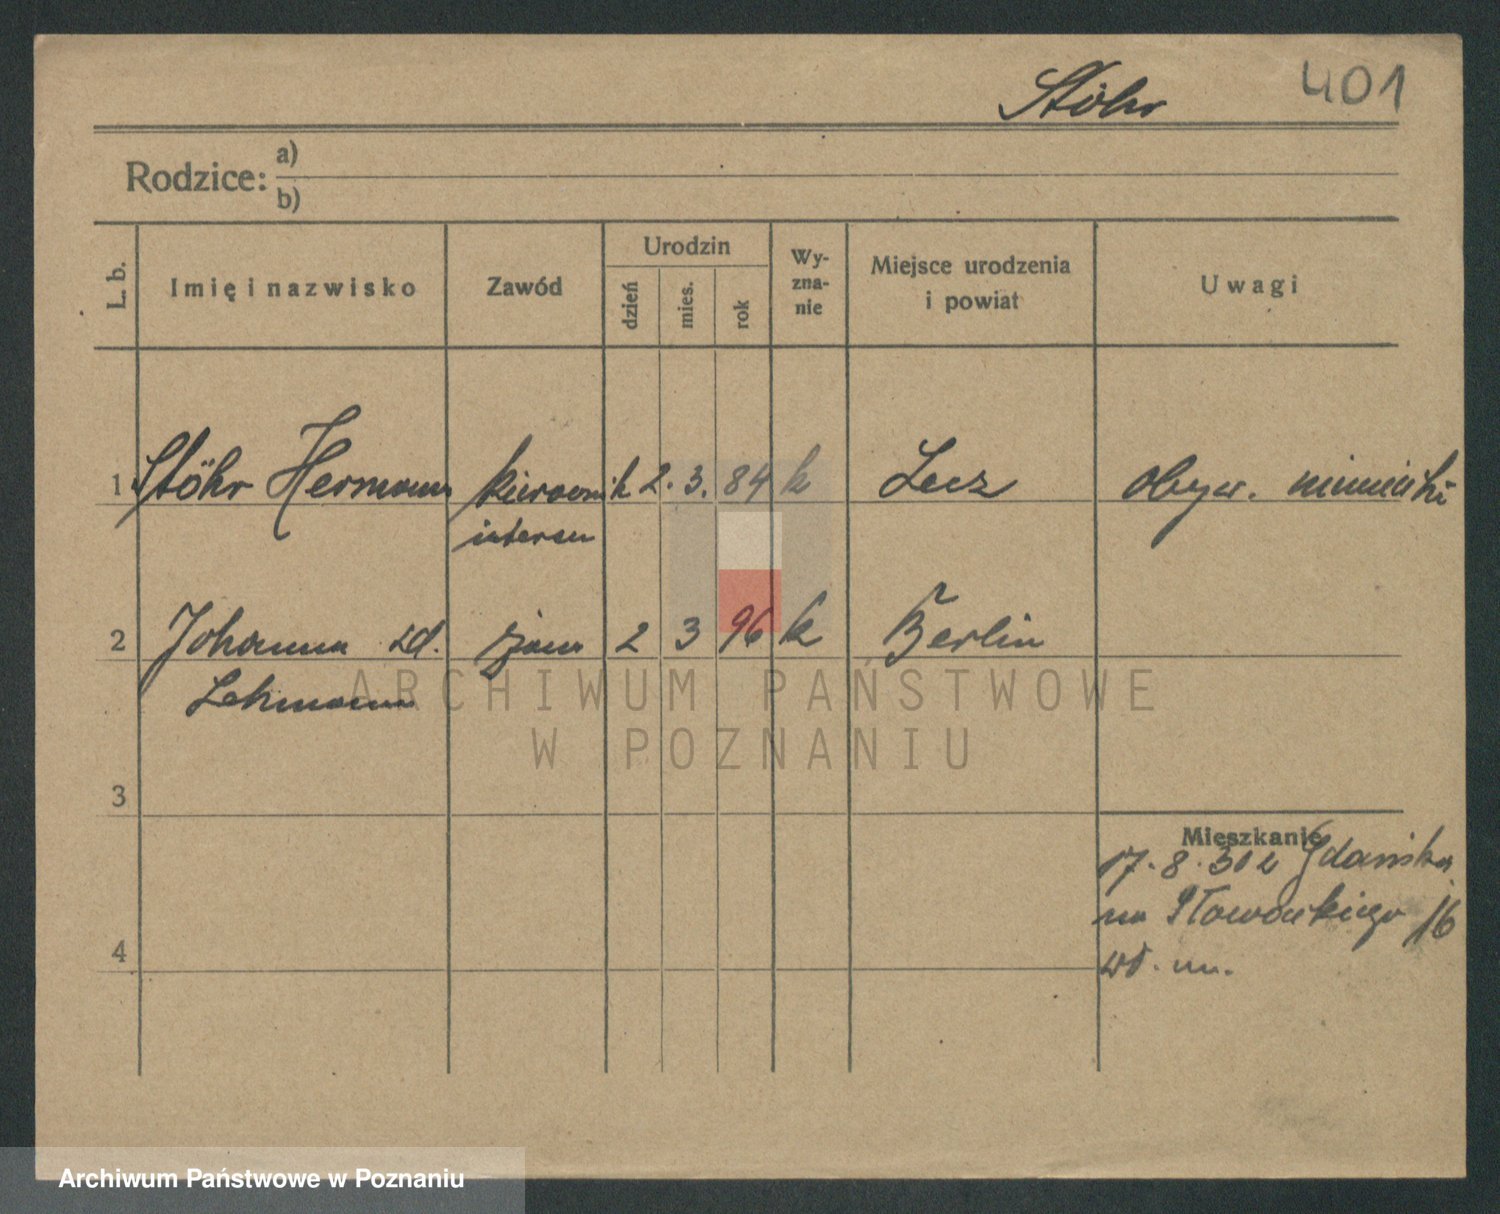 Stöhr 401
Rodzice: a)
b)
L. b. Imię i nazwisko Zawód Urodzin dzień mies. rok Wy-zna-nie Miejsce urodzenia i powiat Uwagi
1 Stöhr Hermann kierownik 2. 3. 84 k obyw. niemiecki
2 Johanna zd. żona 2 3 96 k Berlin
Lehmann
ARCHIWUM PAŃSTWOWE
W POZNANIU
3
Mieszkanie
17. 8. 30 z Gdańska
na Słowackiego 16
4
Archiwum Państwowe w Poznaniu